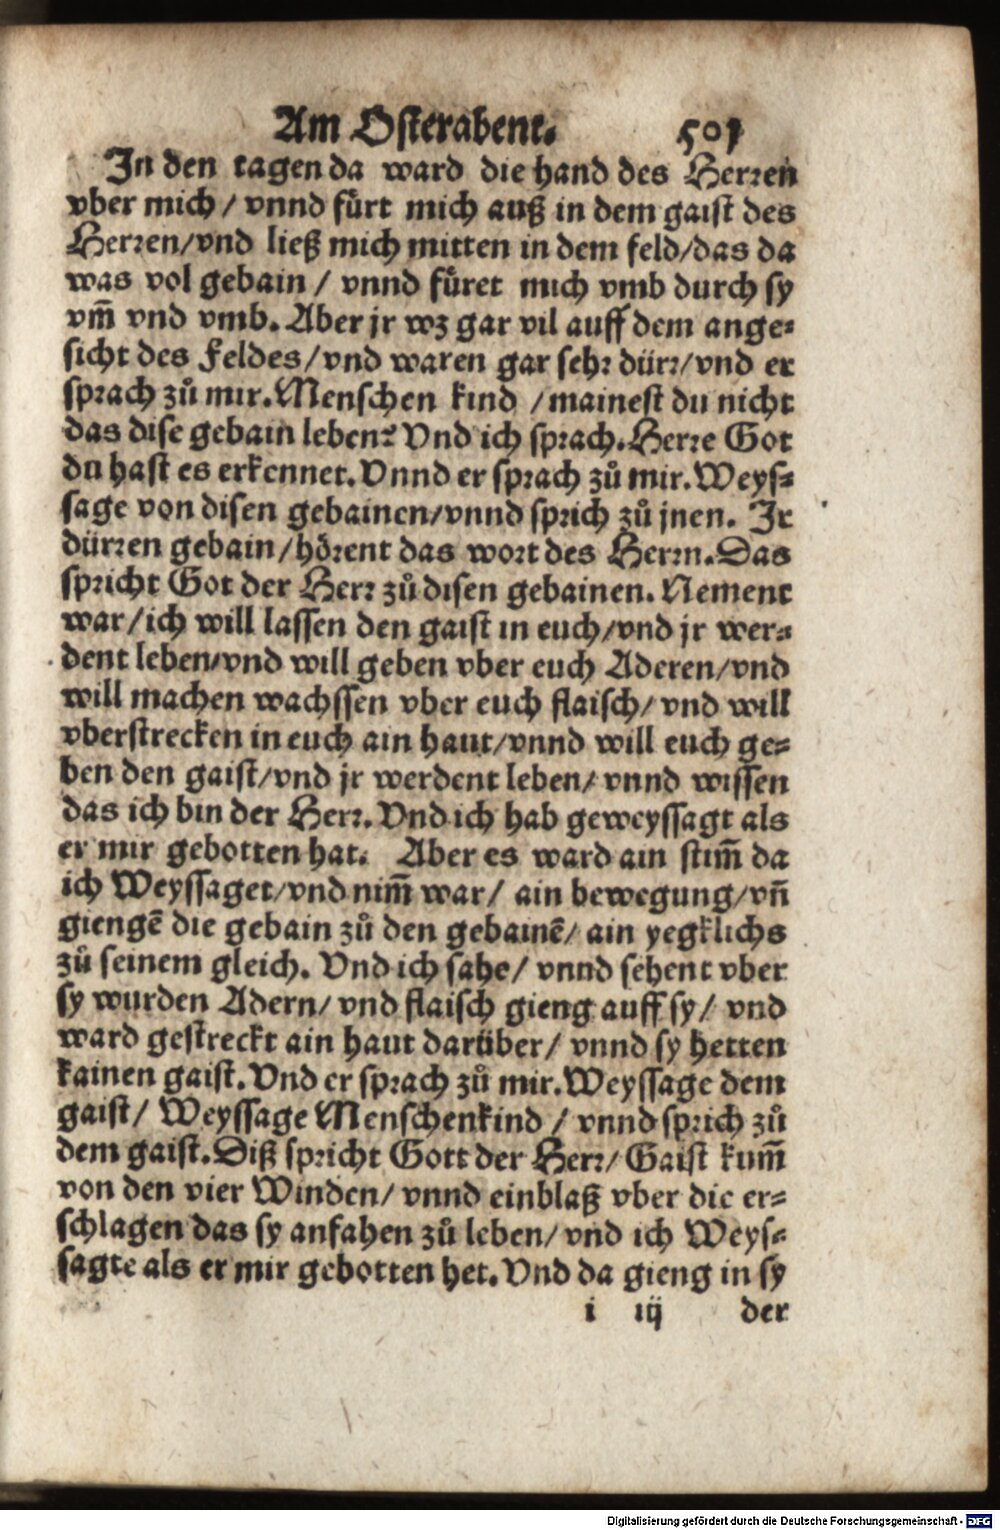 Am Osterabent. 501
In den tagen da ward die hand des Herren
vber mich / vnnd fürt mich auß in dem gaist des
Herren/vnd ließ mich mitten in dem feld/das da
was vol gebain / vnnd füret mich vmb durch sy
vm̄ vnd vmb. Aber jr wz gar vil auff dem ange=
sicht des Feldes/vnd waren gar sehr dürr/vnd er
sprach zů mir. Menschen kind /mainest du nicht
das dise gebain leben? Vnd ich sprach. Herre Got
du hast es erkennet. Vnnd er sprach zů mir. Weys=
sage von disen gebainen/vnnd sprich zů jnen. Ir
dürren gebain/hörent das wort des Herrn. Das
spricht Got der Herr zů disen gebainen. Nement
war/ich will lassen den gaist in euch/vnd jr wer=
dent leben/vnd will geben vber euch Aderen/vnd
will machen wachssen vber euch flaisch/ vnd will
vberstrecken in euch ain haut/vnnd will euch ge=
ben den gaist/vnd jr werdent leben/ vnnd wissen
das ich bin der Herr. Vnd ich hab geweyssagt als
er mir gebotten hat. Aber es ward ain stim̄ da
ich Weyssaget/vnd nim̄ war/ ain bewegung/vn̄
giengē die gebain zů den gebainē/ ain yegklichs
zů seinem gleich. Vnd ich sahe/ vnnd sehent vber
sy wurden Adern/ vnd flaisch gieng auff sy/ vnd
ward gestreckt ain haut darüber/ vnnd sy hetten
kainen gaist. Vnd er sprach zů mir. Weyssage dem
gaist/ Weyssage Menschenkind / vnnd sprich zů
dem gaist. Diß spricht Gott der Herr/ Gaist kum̄
von den vier Winden/ vnnd einblaß vber die er=
schlagen das sy anfahen zů leben/ vnd ich Weys=
sagte als er mir gebotten het. Vnd da gieng in sy
i iij der
Digitalisierung gefördert durch die Deutsche Forschungsgemeinschaft - DFG